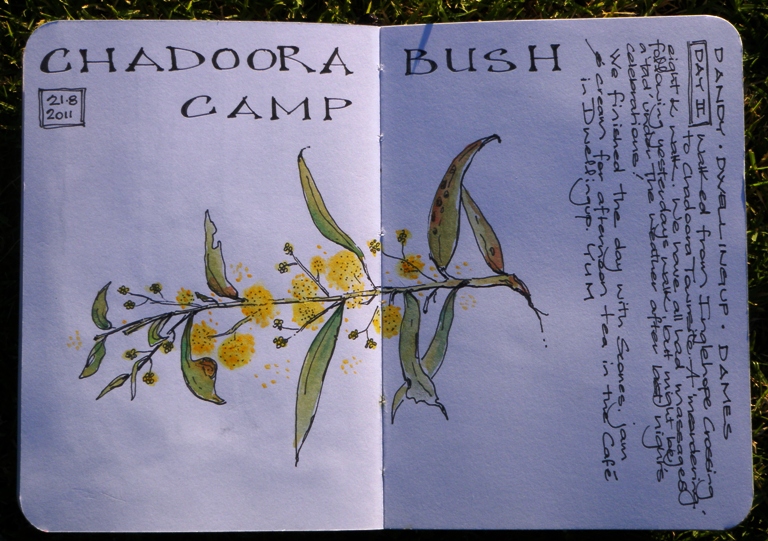 CHADOORA BUSH
CAMP
21·8
2011
DANDY · DWELLINGUP · DAMES
DAY II Walked from Inglehope Crossing
to Chadoora Campsite. A meandering
eight k walk. We have all had massages
following yesterdays walk, but might be
a tad under the weather after last nights
celebrations!
We finished the day with scones, jam
& cream for afternoon tea in the Café
in Dwellingup. YUM